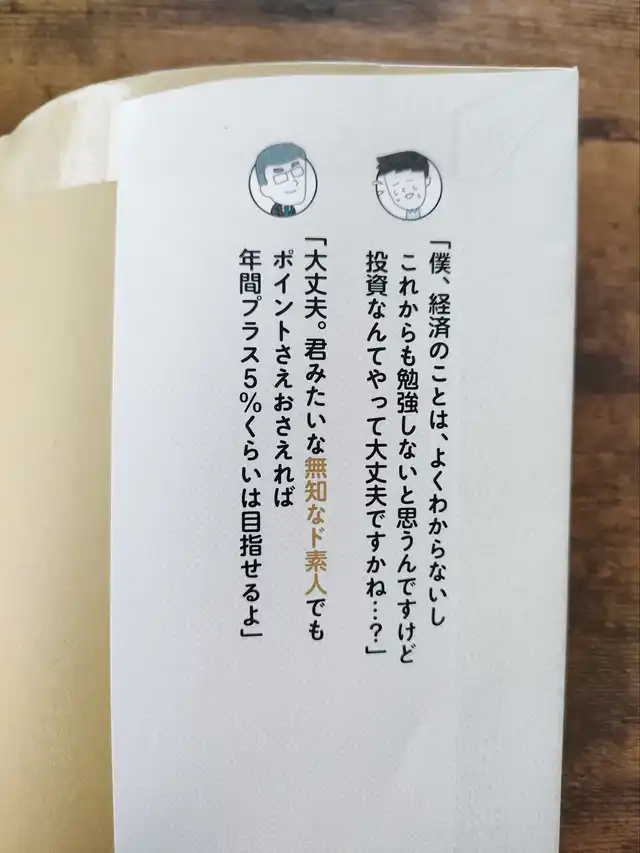 「僕、経済のことは、よくわからないし
これからも勉強しないと思うんですけど
投資なんてやって大丈夫ですかね…？」
「大丈夫。君みたいな無知なド素人でも
ポイントさえおさえれば
年間プラス5%くらいは目指せるよ」